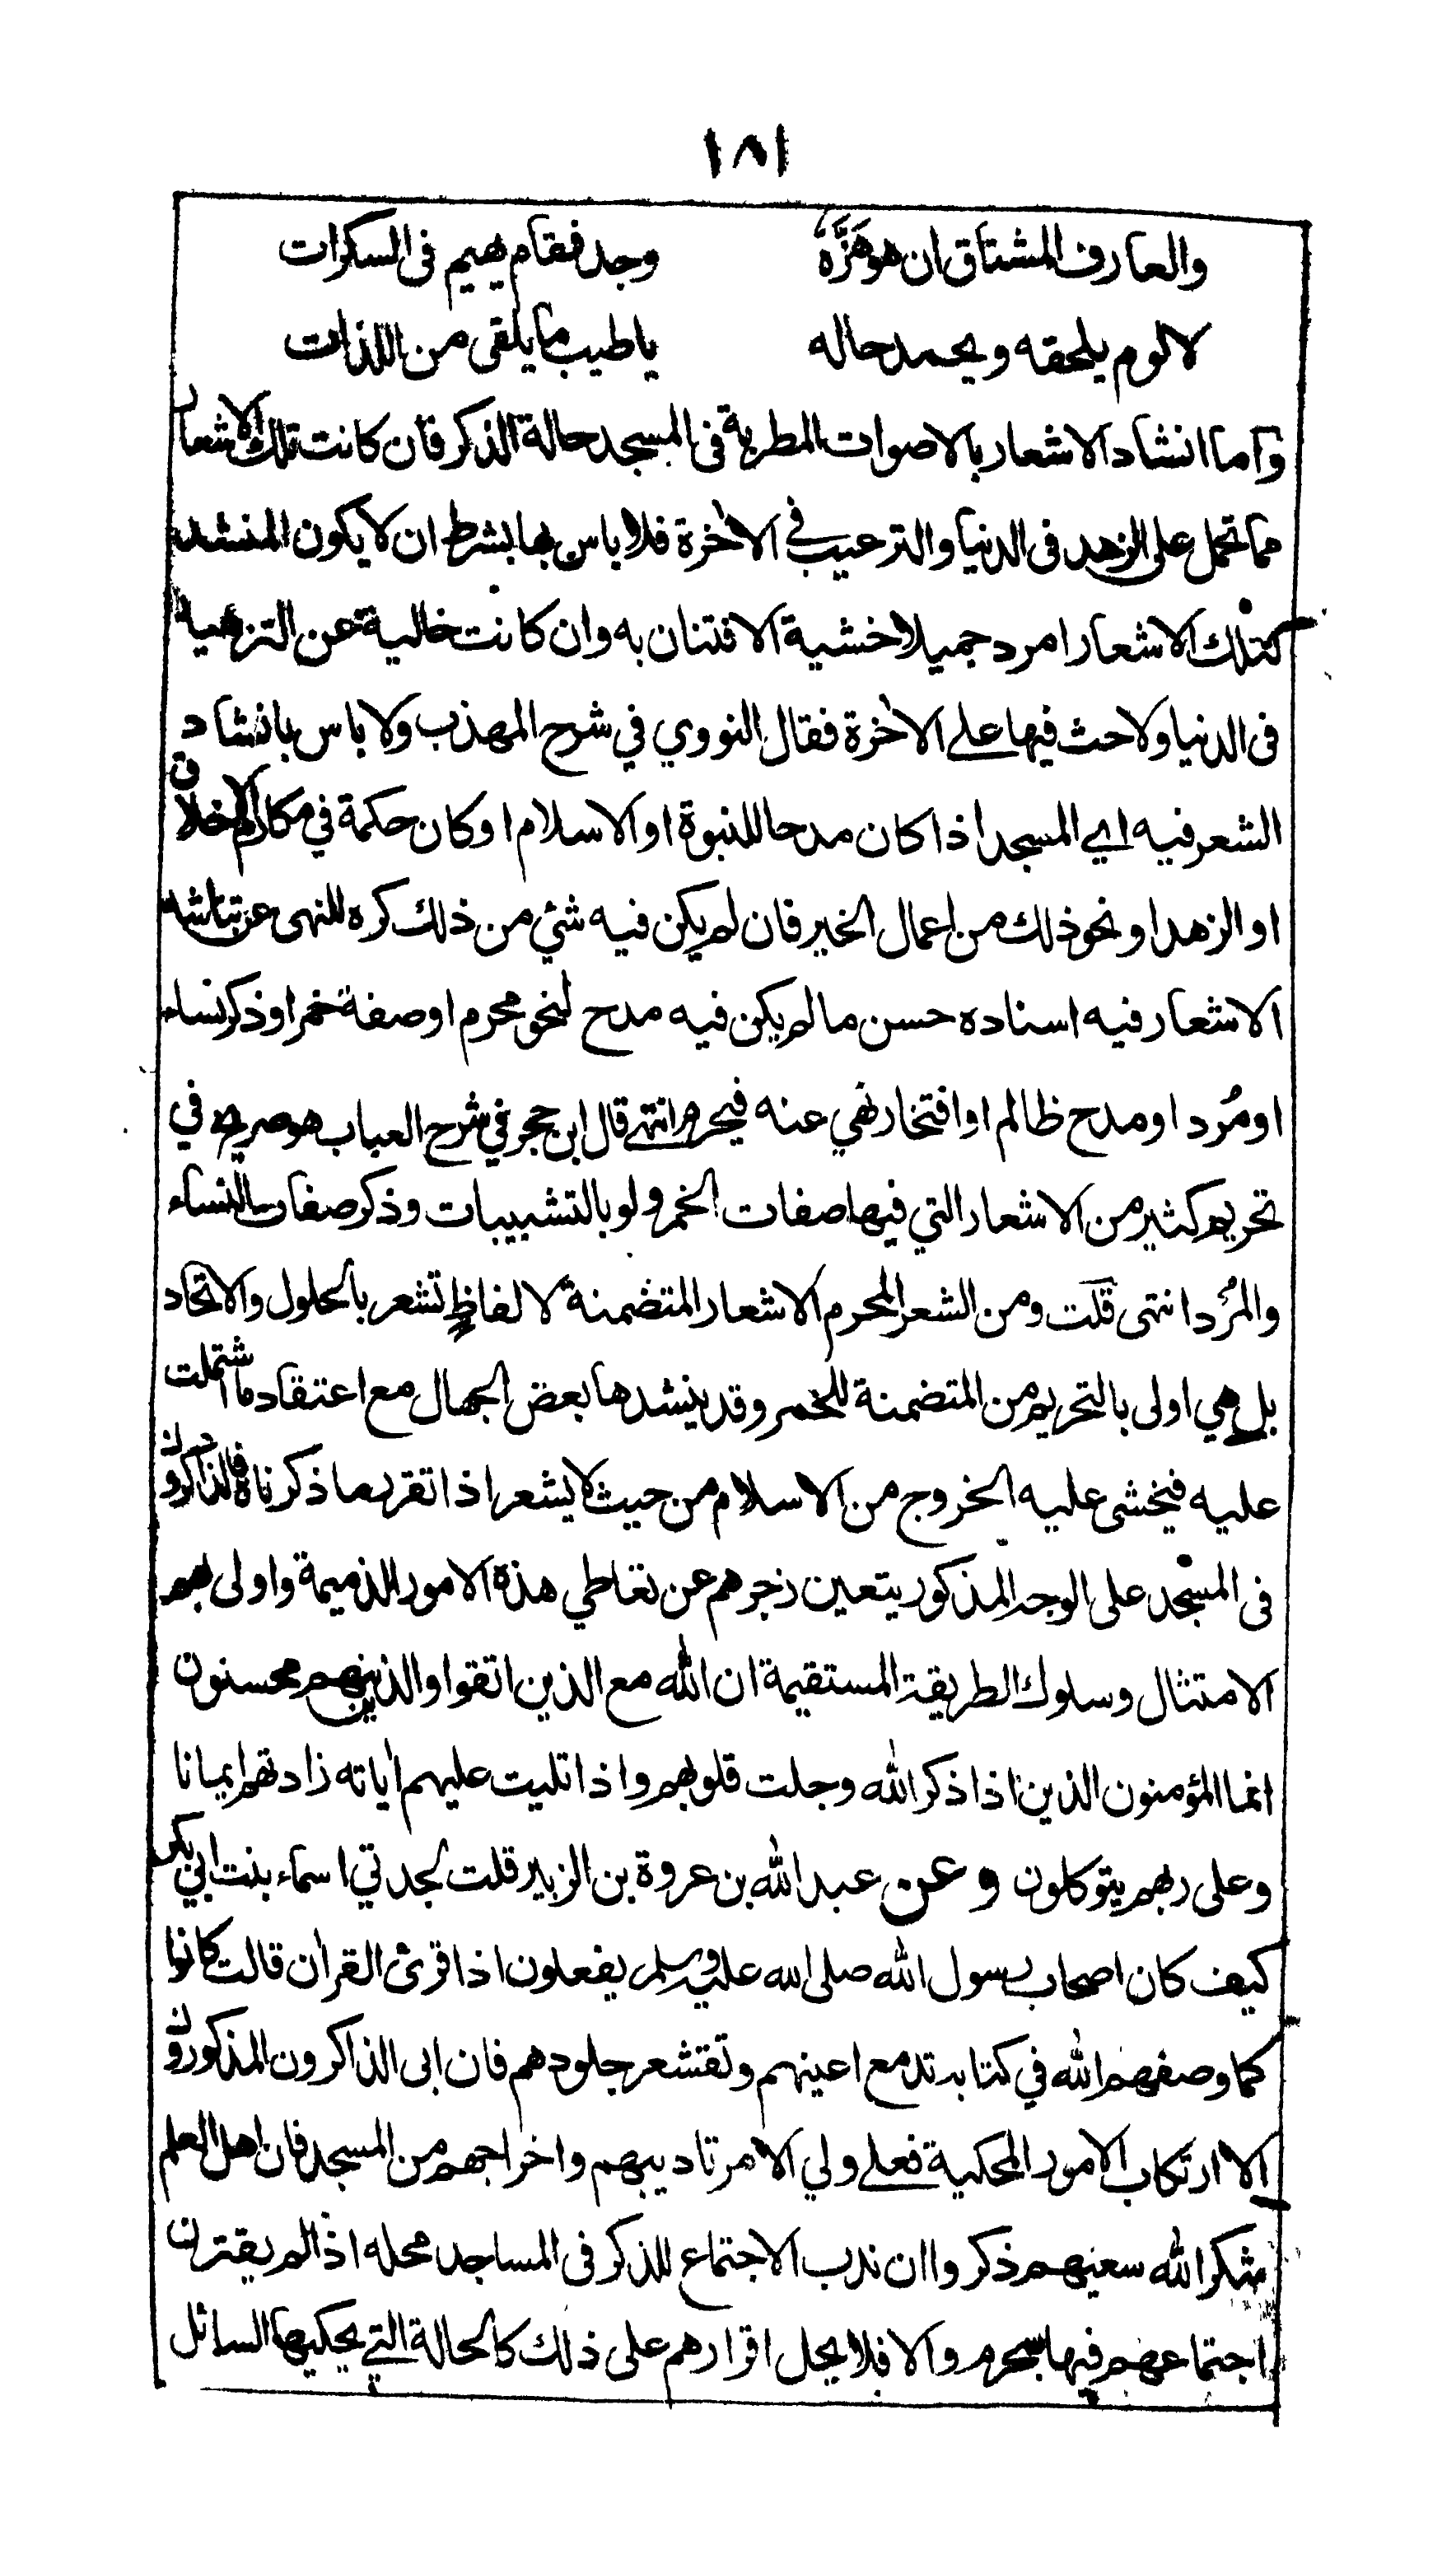 ١٨١
والعارف المشتاق ان هو هَزَّهُ وجد فقام يهيم فى السكرات
لا لوم يلحقه ويحمد حاله يا طيب ما يلقى من اللذات
واما انشاد الاشعار بالاصوات المطربة فى المسجد حالة الذكر فان كانت تلك الاشعار
مما تحمل على الزهد فى الدنيا والترغيب في الاخرة فلا باس بها بشرط ان لا يكون المنشد
لتلك الاشعار امرد جميلا خشية الافتنان به وان كانت خالية عن التزهيد
فى الدنيا ولا حث فيها على الاخرة فقال النووي في شرح المهذب ولا باس بانشاد
الشعر فيه اي المسجد اذا كان مدحا للنبوة او الاسلام او كان حكمة في مكارم الاخلاق
او الزهد او نحو ذلك من اعمال الخير فان لم يكن فيه شئ من ذلك كره للنهى عن تناشد
الاشعار فيه اسناده حسن ما لم يكن فيه مدح لنحو محرم او صفة خمر او ذكر نساء
او مُرد او مدح ظالم او افتخار نهي عنه فيحرم انتهى قال ابن حجر في شرح العباب هو صريح في
تحريم كثير من الاشعار التي فيها صفات الخمر ولو بالتشبيبات وذكر صفات النساء
والمُرد انتهى قلت ومن الشعر المحرم الاشعار المتضمنة لالفاظٍ تشعر بالحلول والاتحاد
بل هي اولى بالتحريم من المتضمنة للخمر وقد ينشدها بعض الجهال مع اعتقاد ما اشتملت
عليه فيخشى عليه الخروج من الاسلام من حيث لا يشعر اذا تقرر ما ذكرناه فالذاكرون
فى المسجد على الوجه المذكور يتعين زجرهم عن تعاطي هذه الامور الذميمة واولى بهم
الامتثال وسلوك الطريقة المستقيمة ان الله مع الذين اتقوا والذين هم محسنون
انما المؤمنون الذين اذا ذكر الله وجلت قلوبهم واذا تليت عليهم اياته زادتهم ايمانا
وعلى ربهم يتوكلون وعن عبد الله بن عروة بن الزبير قلت لجدتي اسماء بنت ابي بكر
كيف كان اصحاب رسول الله صلى الله عليه وسلم يفعلون اذا قرئ القران قالت كانوا
كما وصفهم الله في كتابه تدمع اعينهم وتقشعر جلودهم فان ابى الذاكرون المذكورون
الا ارتكاب الامور المحكية فعلى ولي الامر تاديبهم واخراجهم من المسجد فان اهل العلم
شكر الله سعيهم ذكروا ان ندب الاجتماع للذكر فى المساجد محله اذا لم يقترن
اجتماعهم فيها بمحرم والا فلا يحل اقرارهم على ذلك كالحالة التي يحكيها السائل